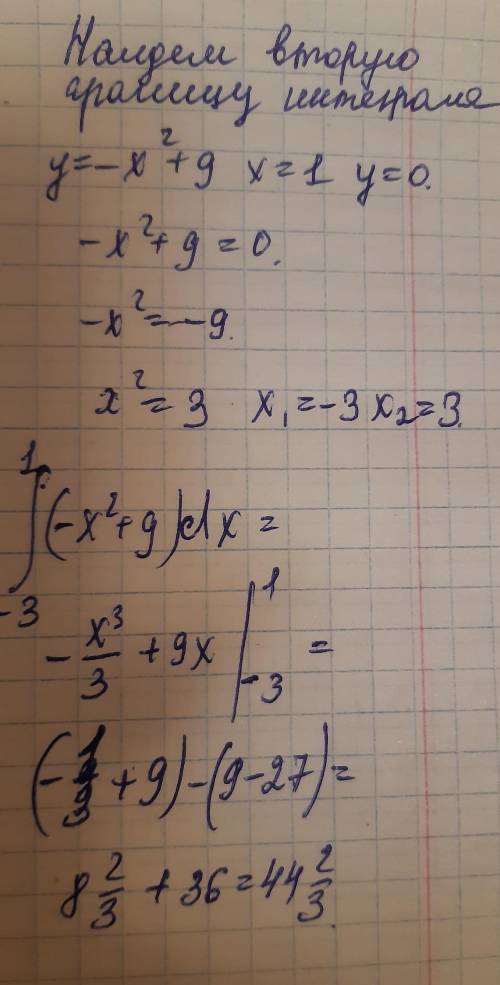 Найдем вторую
границу интеграла
y=-x²+9 x=1 y=0.
-x²+9=0.
-x²=-9.
x²=3 x₁=-3 x₂=3.
∫₋₃¹(-x²+9)dx=
-x³/3+9x|₋₃¹=
(-1/3+9)-(9-27)=
8 2/3+36=44 2/3.